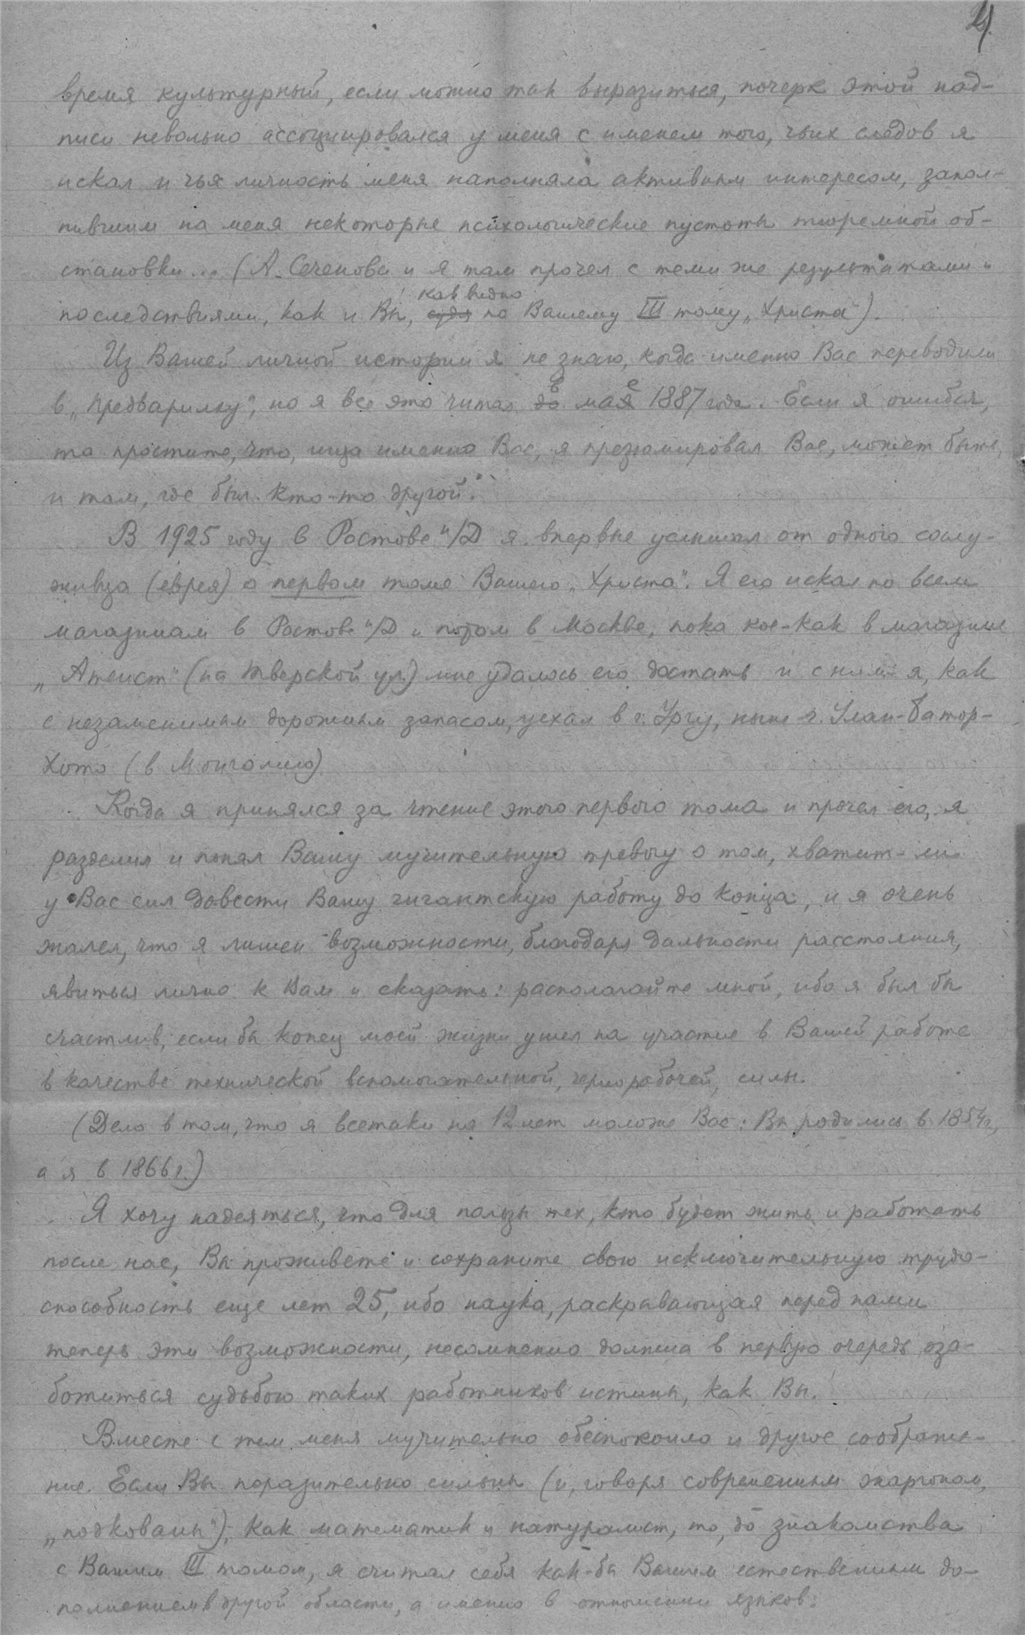 4
время культурный, если можно так выразиться, почерк этой над-
писи невольно ассоциировался у меня с именем того, чьих следов я
искал и чья личность меня наполняла активным интересом, запол-
нившим на меня некоторые психологические пустоты тюремной об-
становки... (А. Сеченова и я там прочел с теми же результатами и
последствиями, как и Вы, как видно по Вашему III тому „Христа").
Из Вашей личной истории я не знаю, когда именно Вас переводили
в „Предварилку", но я все это читал в мае 1887 года. Если я ошибся,
то простите, что, ища именно Вас, я презюмировал Вас, может быть,
и там, где был кто-то другой.
В 1925 году в Ростове н/Д я впервые услышал от одного сослу-
живца (еврея) о первом томе Вашего „Христа". Я его искал по всем
магазинам в Ростове н/Д и потом в Москве, пока кое-как в магазине
„Атеист" (на Тверской ул.) мне удалось его достать и с ним я, как
с незаменимым дорожным запасом, уехал в г. Ургу, ныне г. Улан-Батор-
Хото (в Монголию).
Когда я принялся за чтение этого первого тома и прочел его, я
разделил и понял Вашу мучительную тревогу о том, хватит-ли
у Вас сил довести Вашу гигантскую работу до конца, и я очень
жалел, что я лишен возможности, благодаря дальности расстояния,
явиться лично к Вам и сказать: располагайте мной, ибо я был бы
счастлив, если бы конец моей жизни ушел на участие в Вашей работе
в качестве технической вспомогательной, чернорабочей, силы.
(Дело в том, что я всетаки на 12 лет моложе Вас: Вы родились в 1854 г.,
а я в 1866 г.)
Я хочу надеяться, что для пользы тех, кто будет жить и работать
после нас, Вы проживете и сохраните свою исключительную трудо-
способность еще лет 25, ибо наука, раскрывающая перед нами
теперь эти возможности, несомненно должна в первую очередь оза-
ботиться судьбою таких работников истины, как Вы.
Вместе с тем меня мучительно обеспокоило и другое соображе-
ние. Если Вы поразительно сильны (и, говоря современным жаргоном,
„подкованы"), как математик и натуралист, то, до знакомства
с Вашим III томом, я считал себя как-бы Вашим естественным до-
полнением в другой области, а именно в отношении языков: